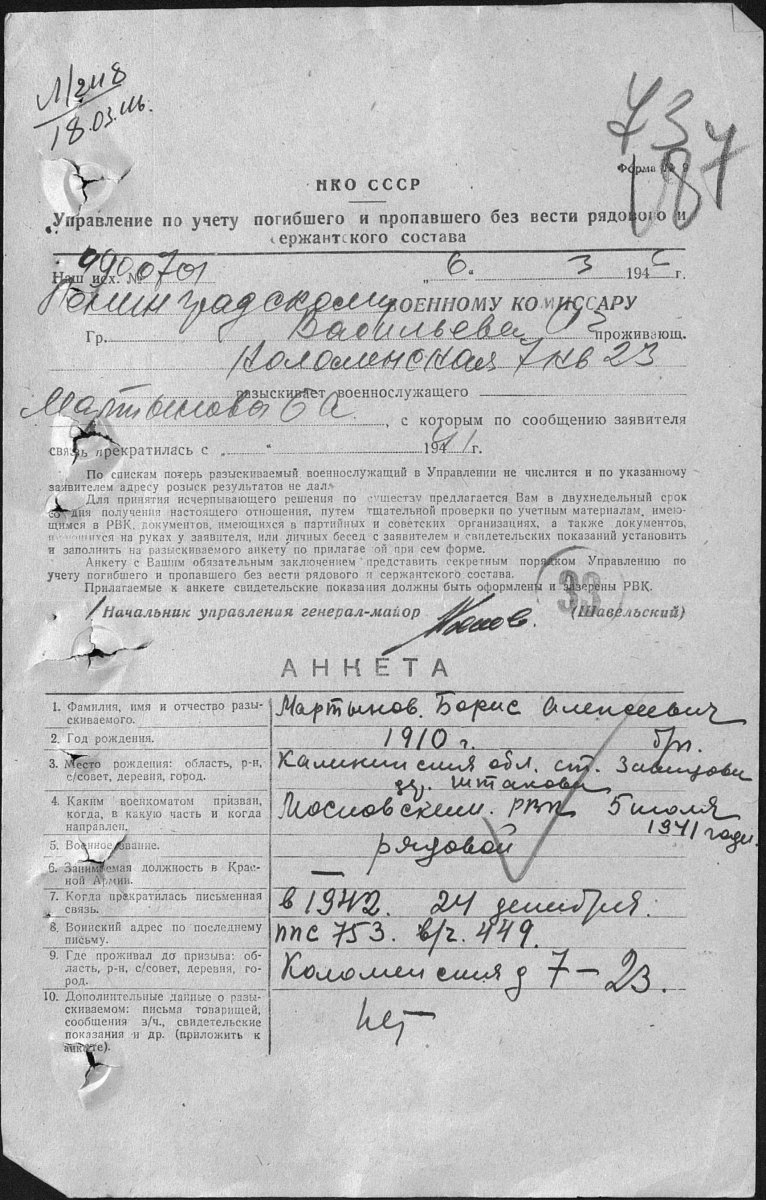 18.03.46.
73
187
Форма № 9
НКО СССР
Управление по учету погибшего и пропавшего без вести рядового и
сержантского состава
Наш исх. № „6“ 3 194 г.
Ленинградскому ВОЕННОМУ КОМИССАРУ
Гр. Васильева проживающ.
Коломенская 7 кв 23
разыскивает военнослужащего
Мартынова Б А, с которым по сообщению заявителя
связь прекратилась с „ “ 1941 г.
По спискам потерь разыскиваемый военнослужащий в Управлении не числится и по указанному
заявителем адресу розыск результатов не дал.
Для принятия исчерпывающего решения по существу предлагается Вам в двухнедельный срок
со дня получения настоящего отношения, путем тщательной проверки по учетным материалам, имею-
щимся в РВК, документов, имеющихся в партийных и советских организациях, а также документов,
имеющихся на руках у заявителя, или личных бесед с заявителем и свидетельских показаний установить
и заполнить на разыскиваемого анкету по прилагаемой при сем форме.
Анкету с Вашим обязательным заключением представить секретным порядком Управлению по
учету погибшего и пропавшего без вести рядового и сержантского состава.
Прилагаемые к анкете свидетельские показания должны быть оформлены и заверены РВК.
33
Начальник управления генерал-майор (Шавельский)
АНКЕТА
1. Фамилия, имя и отчество разы-
скиваемого.
Мартынов Борис Алексеевич
2. Год рождения.
1910 г. бп.
3. Место рождения: область, р-н,
с/совет, деревня, город.
Калининская обл. ст.
дер.
4. Каким военкоматом призван,
когда, в какую часть и когда
направлен.
Московским РВК 5 июля
1941 года.
5. Военное звание.
рядовой
6. Занимаемая должность в Крас-
ной Армии.
—
7. Когда прекратилась письменная
связь.
в 1942. 24 декабря.
8. Воинский адрес по последнему
письму.
ппс 753. в/ч. 449.
9. Где проживал до призыва: об-
ласть, р-н, с/совет, деревня, го-
род.
Коломенская д 7 – 23.
10. Дополнительные данные о разы-
скиваемом: письма товарищей,
сообщения з/ч., свидетельские
показания и др. (приложить к
анкете).
нет